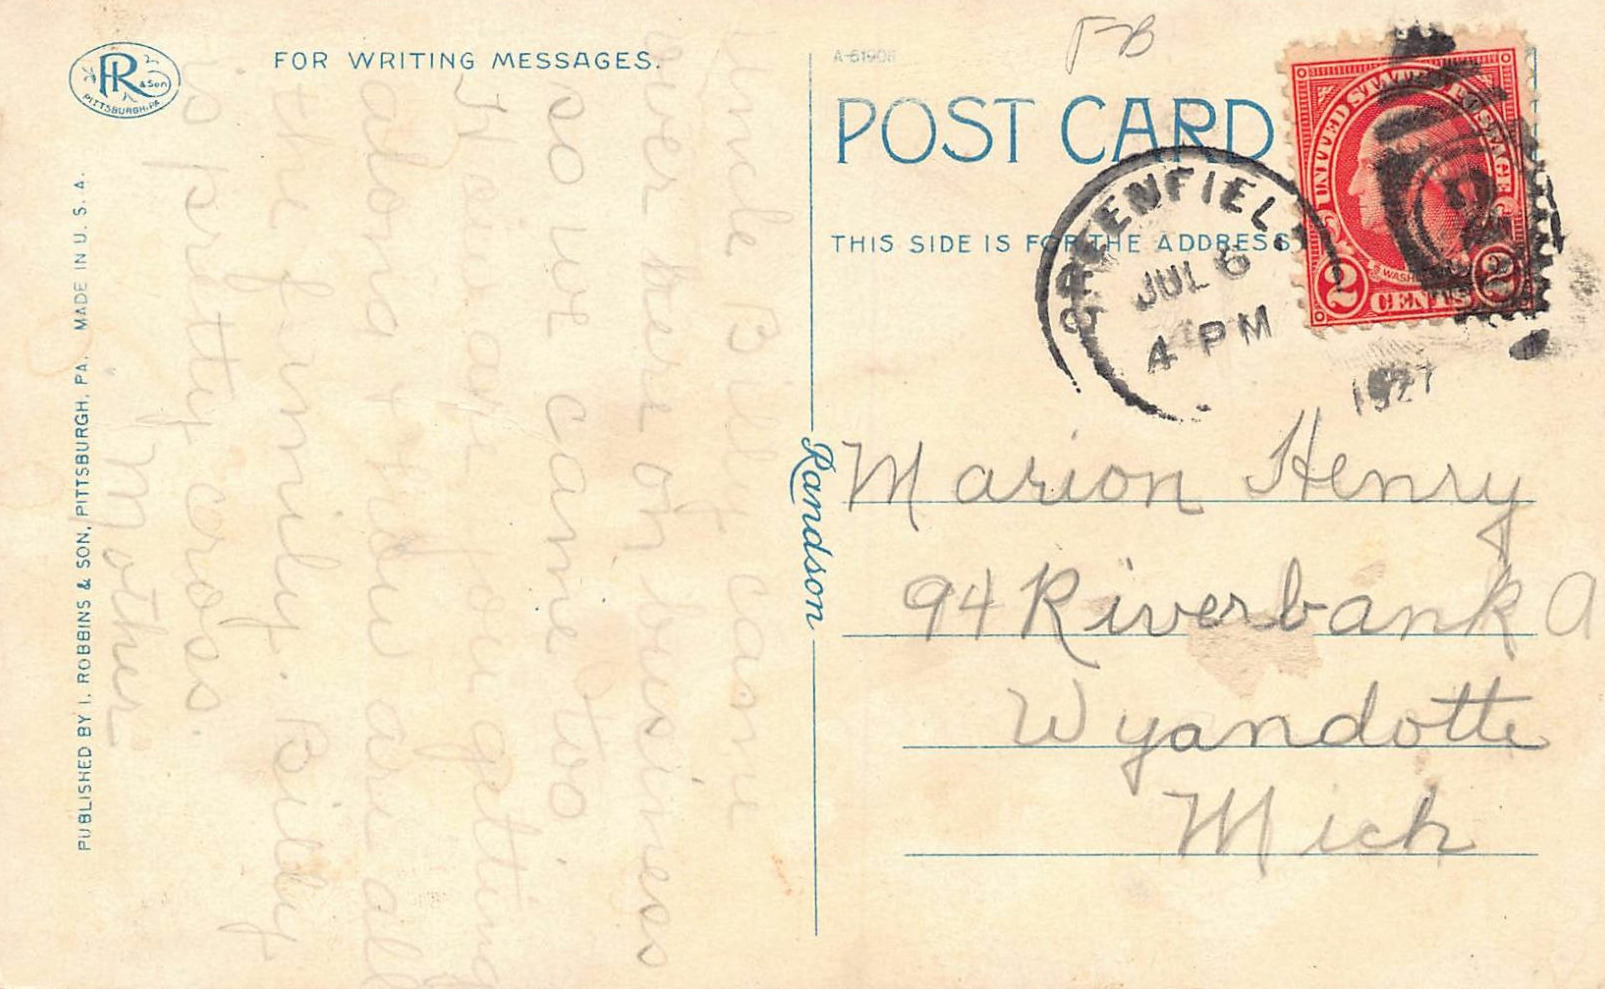 FOR WRITING MESSAGES.
R & Son
PITTSBURGH, PA.
PUBLISHED BY I. ROBBINS & SON, PITTSBURGH, PA. MADE IN U. S. A.
Uncle Bill came
over here on business
so we came too
How are you getting
along & how are all
the family. Billy
is pretty cross.
Mother
Randson
A-61908
FB
POST CARD
THIS SIDE IS FOR THE ADDRESS
GREENFIEL
JUL 6
4 PM
1927
UNITED STATES POSTAGE
2 CENTS 2
Marion Henry
94 Riverbank A
Wyandotte
Mich